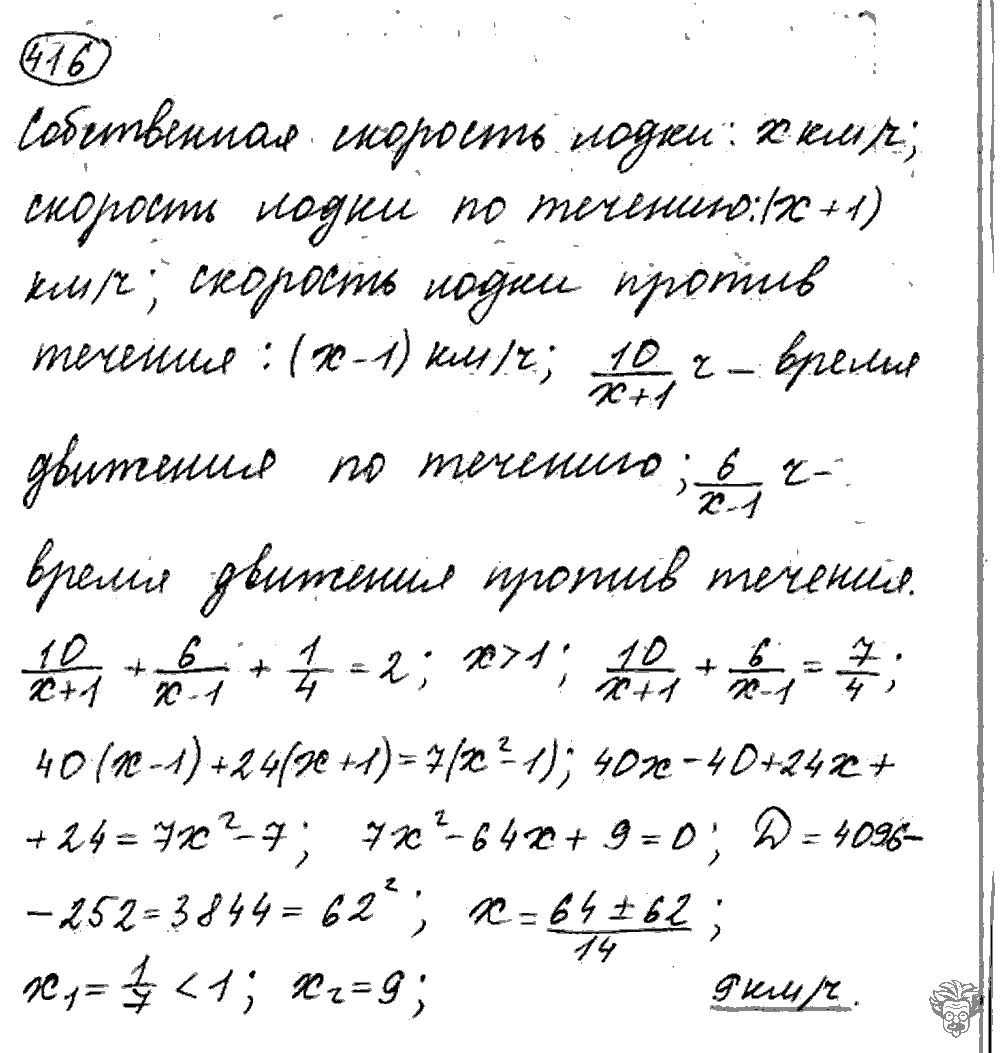 416
Собственная скорость лодки: x км/ч;
скорость лодки по течению: (x+1)
км/ч; скорость лодки против
течения: (x-1) км/ч; 10/(x+1) ч – время
движения по течению; 6/(x-1) ч –
время движения против течения.
10/(x+1) + 6/(x-1) + 1/4 = 2; x>1; 10/(x+1) + 6/(x-1) = 7/4;
40(x-1)+24(x+1)=7(x²-1); 40x-40+24x+
+24=7x²-7; 7x²-64x+9=0; D=4096-
-252=3844=62²; x=(64±62)/14;
x₁=1/7<1; x₂=9; 9км/ч.